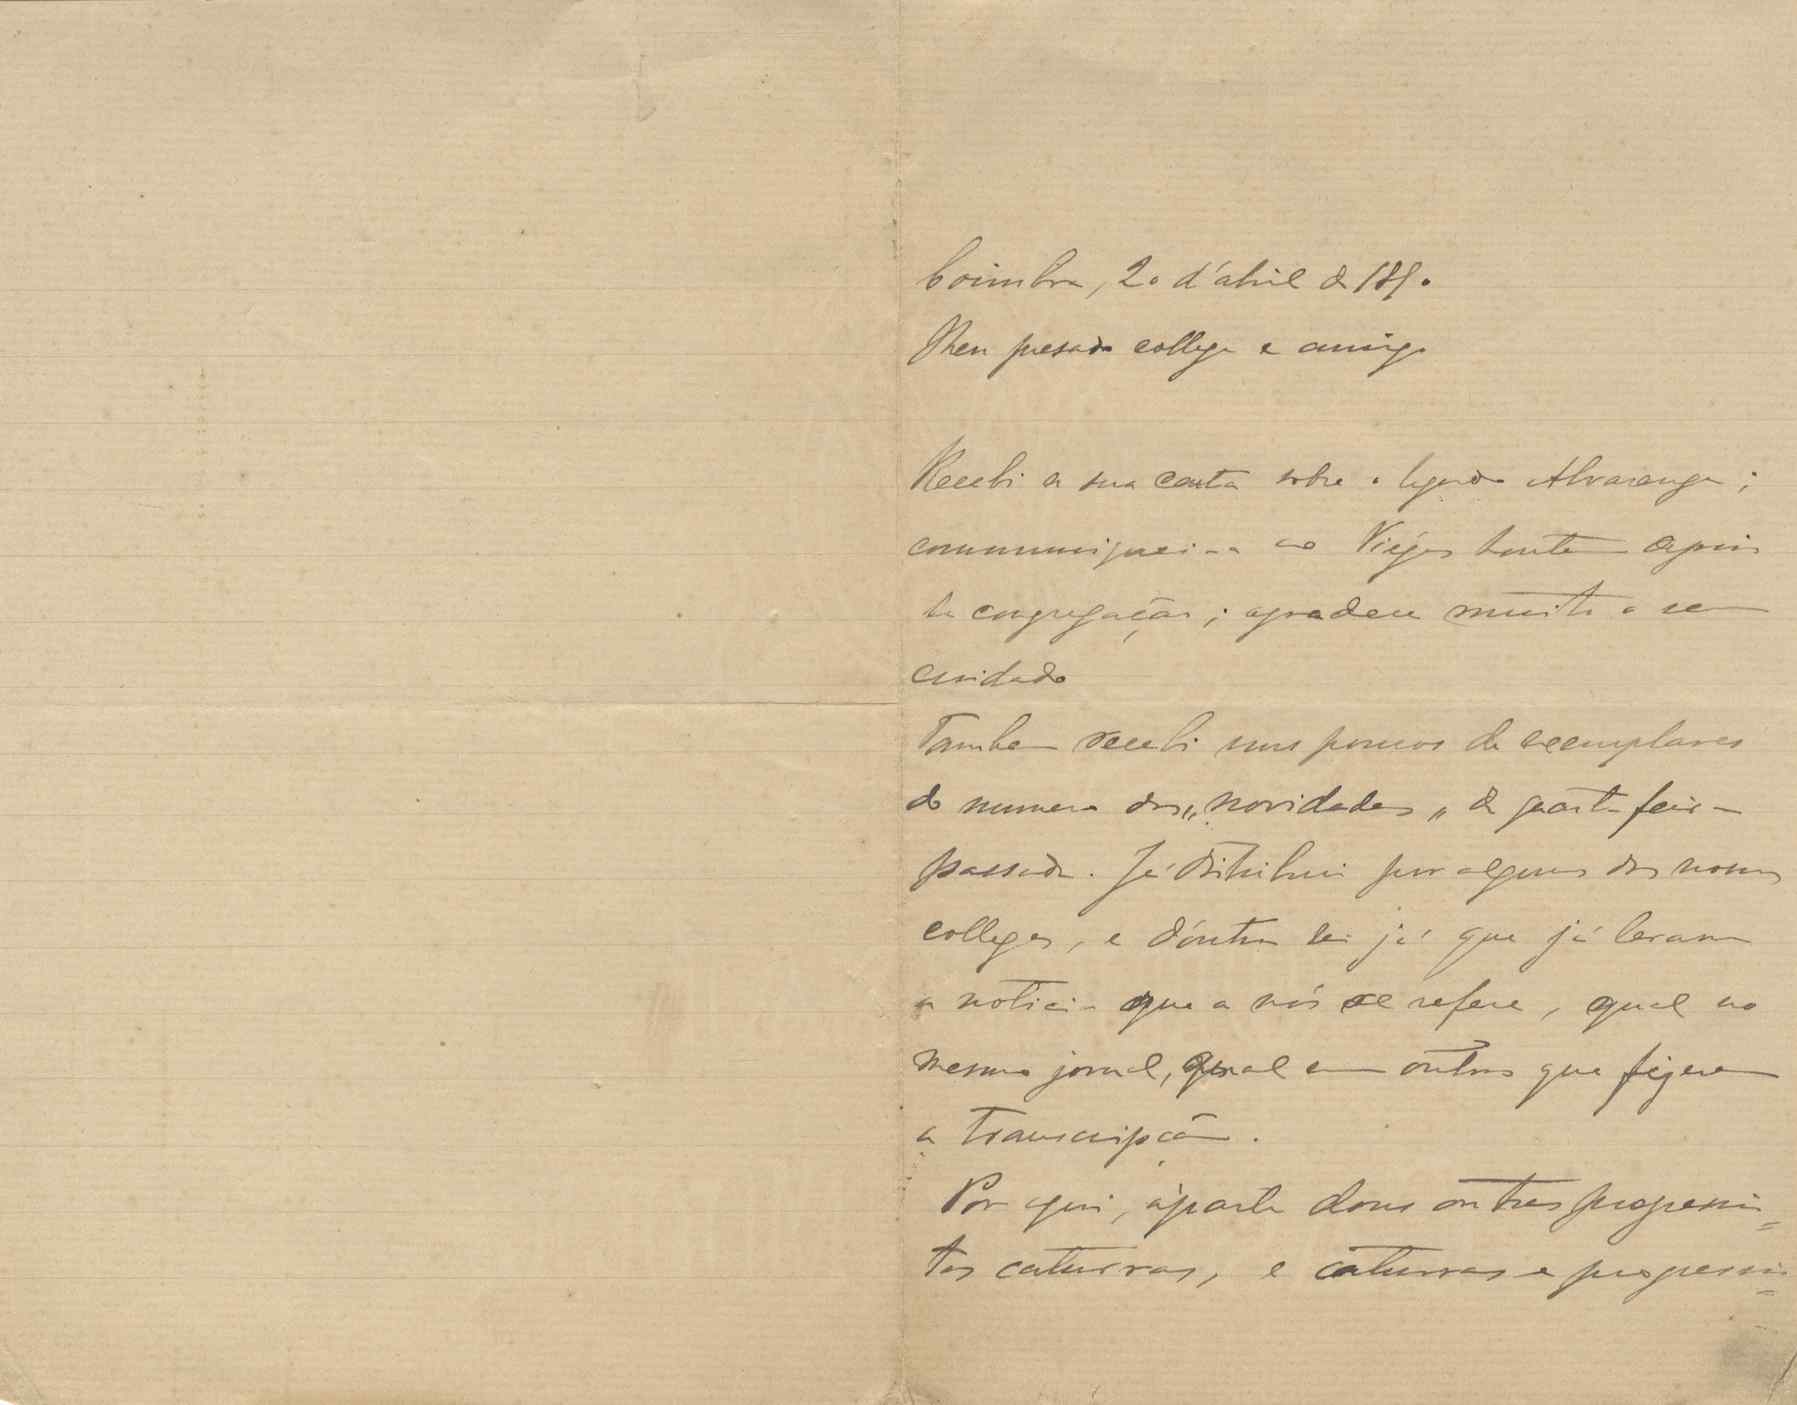 Coimbra, 20 d'abril de 1890
Meu presado collega e amigo
Recebi a sua carta sobre o legado Alvarenga;
communiquei-a ao Viégas hontem depois
da congregação; agradeceu muito o seu
cuidado
Tambem recebi uns poucos de exemplares
do numero das "novidades" de quarta feira
passada. Já distribui por alguns dos nossos
collegas, e d'outros sei já que já leram
a noticia que a nós se refere, qual no
mesmo jornal, qual em outros que fizeram
a transcripção.
Por aqui, áparte dous ou tres progressis=
tas caturras, e caturras e progressis=